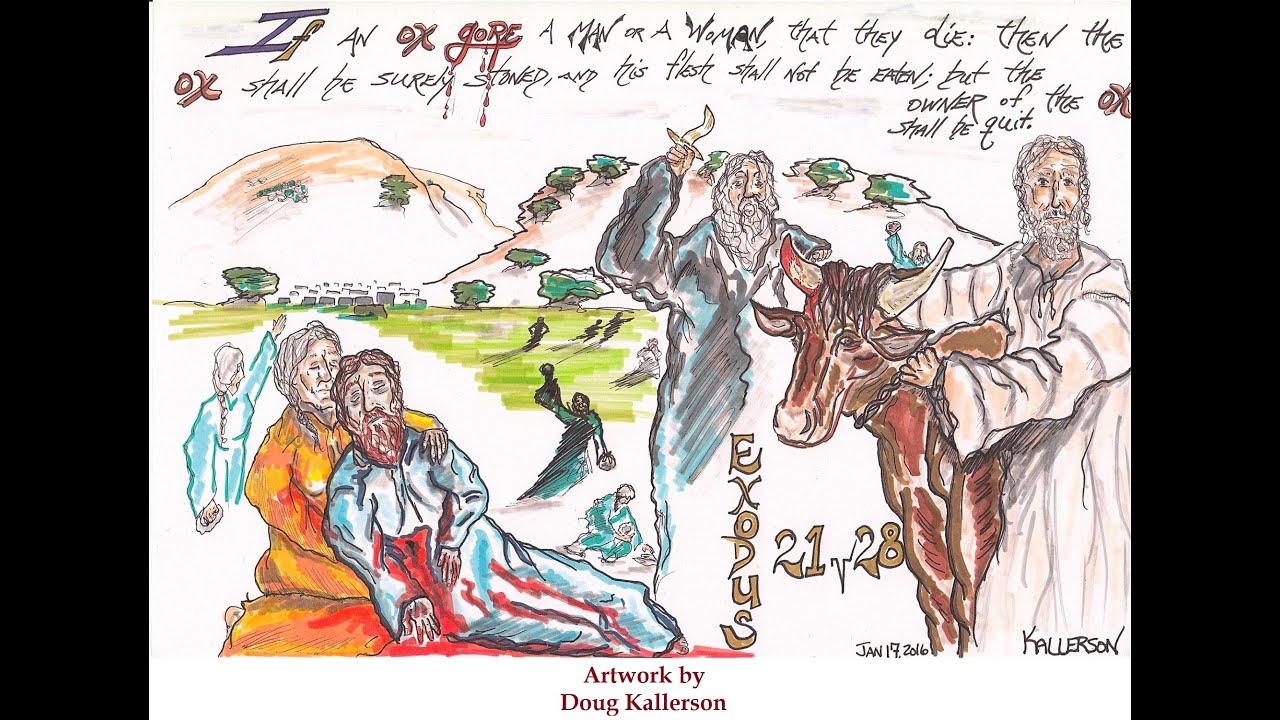 If AN OX gORE A MAN OR A WOMAN, that they die: then the
OX shall be surely stoned, and his flesh shall not be eaten; but the
OWNER of the OX
shall be quit.
EXODUS
21 v 28
JAN 17, 2016
KALLERSON
Artwork by
Doug Kallerson